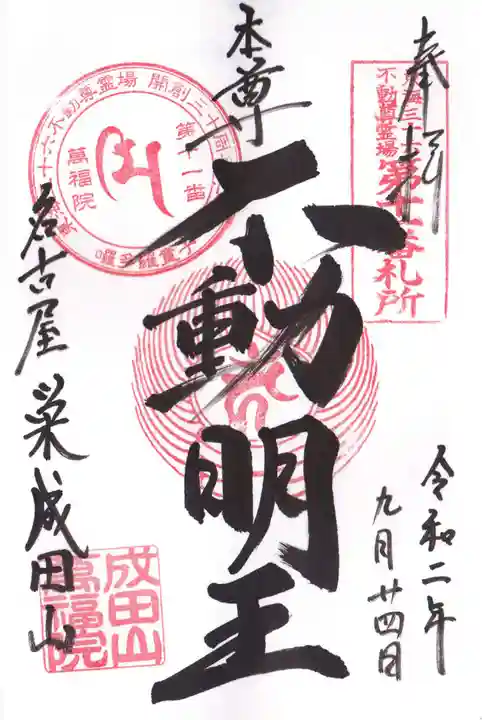 奉拝
東海三十六
不動尊霊場
第十一番札所
本尊
不動明王
十六不動尊霊場 開創三十周
第十一番
萬福院
童子
名古屋 栄成田山
成田山
萬福院
令和二年
九月廿四日